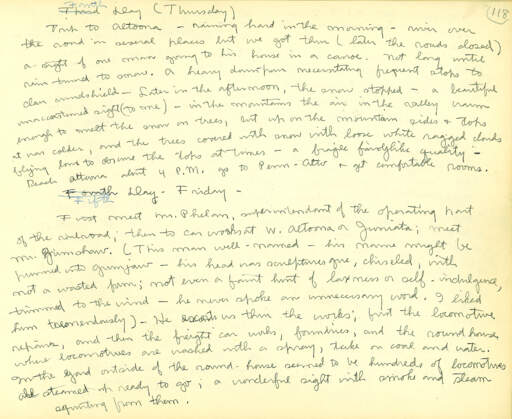 118
Fourth
Third Day (Thursday)
Trip to Altoona - raining hard in the morning - river over
the road in several places but we got thru (later the roads closed)
a sight of one man going to his house in a canoe. Not long until
rain turned to snow. A heavy downpour necessitating frequent stops to
clean windshield - Later in the afternoon, the snow stopped - a beautiful
unaccustomed sight (to me) - in the mountains the air in the valley warm
enough to melt the snow on trees, but up on the mountain sides & tops
it was colder, and the trees covered with snow with loose white ragged clouds
flying low to obscure the tops at times - a fragile quality -
Reach Altoona about 4 P.M. go to Penn-Alto & get comfortable rooms.
Fifth
Fourth Day - Friday -
First meet Mr. Phelan, superintendent of the operating part
of the railroad; then to car works at W. Altoona or Juniata; meet
Mr. Grimshaw. (This man well-named - his name might be
punned into grimjaw - his head was sculpturesque, chiseled, with
not a wasted form; not even a faint hint of laxness or self-indulgence,
trimmed to the wind - he never spoke an unnecessary word. I liked
him tremendously) - He escorts us thru the works; first the locomotive
repairs, and then the freight car works, foundries, and the round house
where locomotives are washed with a spray, take on coal and water.
In the yard outside of the round-house seemed to be hundreds of locomotives
all steamed up ready to go; a wonderful sight with smoke and steam
spurting from them.